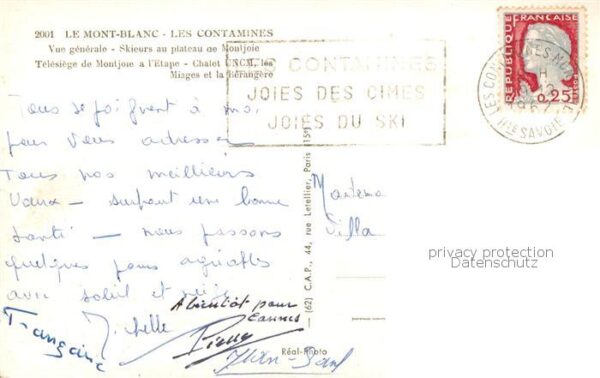 2001 LE MONT-BLANC - LES CONTAMINES
Vue générale - Skieurs au plateau de Montjoie
Télésiège de Montjoie à l'Etape - Chalet UNCM, les
Miages et la Bérangère
CONTAMINES
JOIES DES CIMES
JOIES DU SKI
REPUBLIQUE FRANÇAISE
0,25
LES CONTAMINES
HTE SAVOIE
Tous se joignent à moi
pour vous adresser
Tous nos meilleurs
Vœux - surtout une bonne
santé - nous passons
quelques jours agréables
avec soleil et neige
Michelle
A bientôt pour
Cannes
Pierre
Jean-Paul
Villa
(62) C.A.P., 44, rue Letellier, Paris (15e)
Réal-Photo
privacy protection
Datenschutz